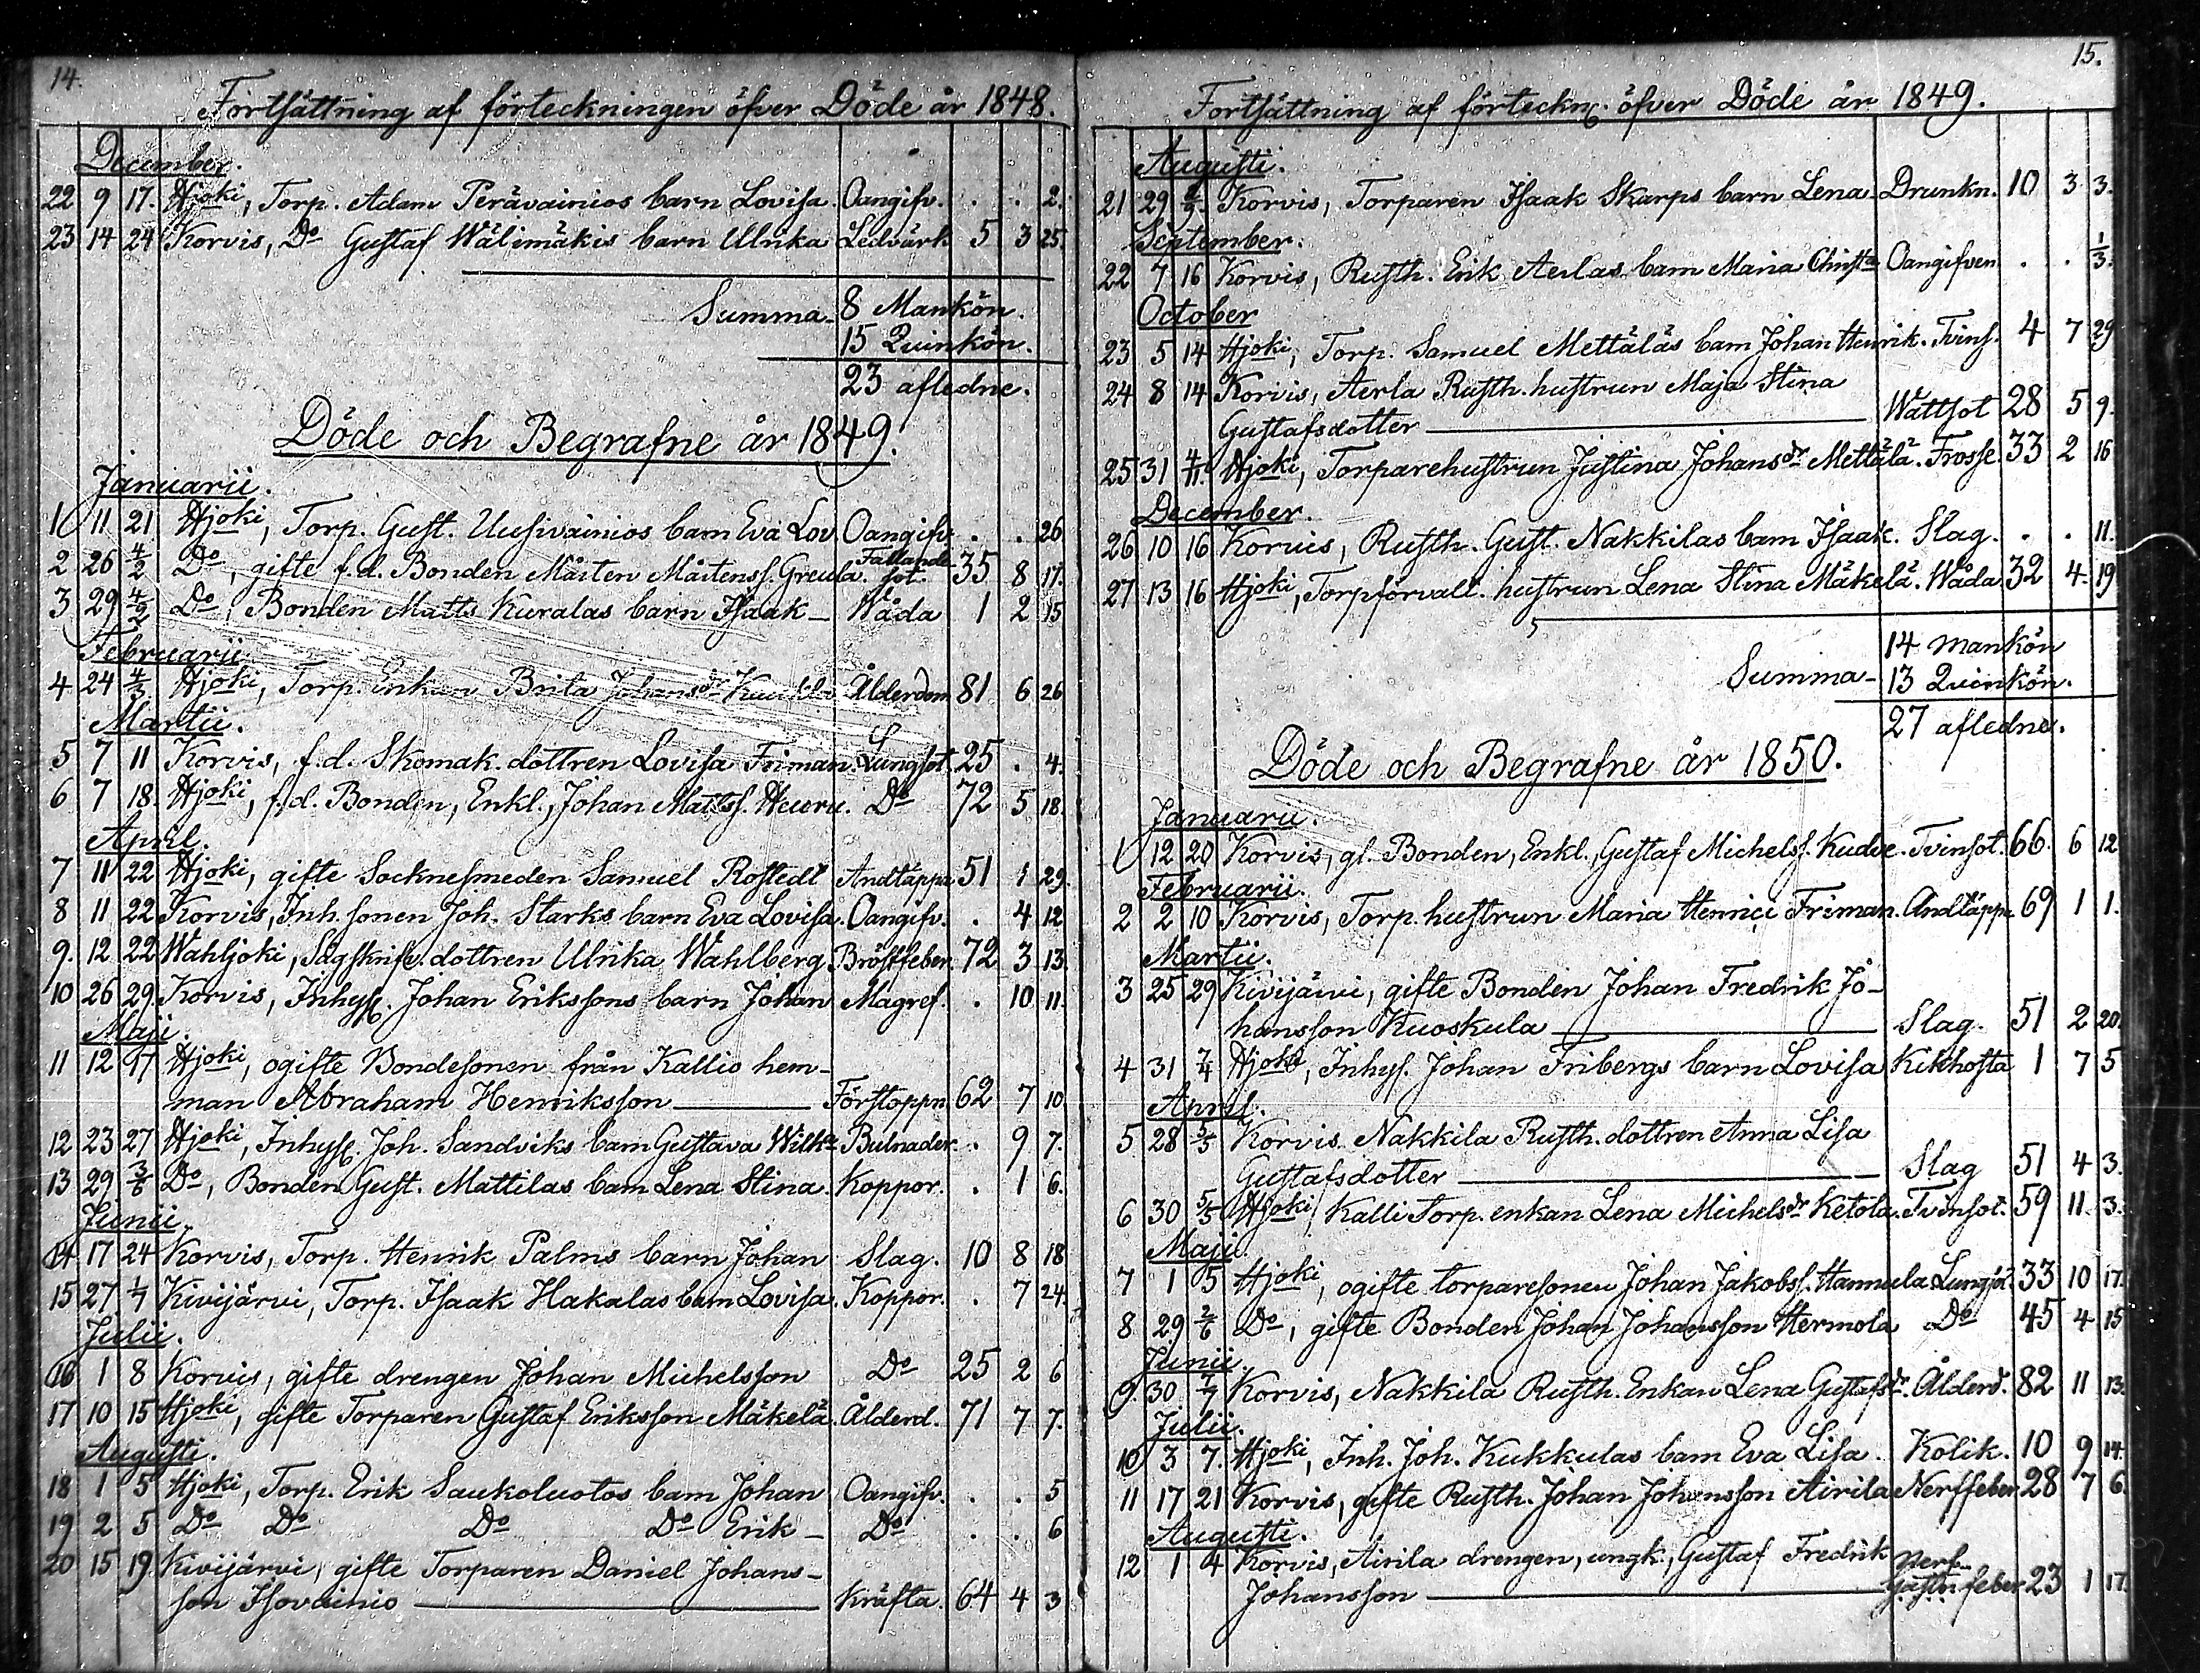 14.
Fortsättning af förteckningen öfver Döde år 1848.
December.
22 9 17. Hjoki, Torp. Adam Perävainios barn Lovisa. Oangifv. . . 2.
23 14 24 Korvis, Do Gustaf Wälimäkis barn Ulrika Ledvärk 5 3 25.
Summa - 8 Mankön.
15 Quinkön.
23 afledne.
Döde och Begrafne år 1849.
Januarii.
1 11 21 Hjoki, Torp. Gust. Uusivainios barn Eva Lov. Oangifv. . . 26
2 26 4/2 Do, gifte f.d. Bonden Mårten Mårtenss. Greula. Fallande sot. 35 8 17.
3 29 4/2 Do, Bonden Matts Kuralas barn Isaak - Wåda 1 2 15
Februarii.
4 24 4/3 Hjoki, Torp. Enkan Brita Johansdr Ålderdom 81 6 26
Martii.
5 7 11 Korvis, f.d. Skomak. dottren Lovisa Friman. Lungsot. 25 . 4.
6 7 18. Hjoki, f.d. Bonden, Enkl., Johan Mattss. Heuru. Do 72 5 18.
April.
7 11 22 Hjoki, gifte Socknesmeden Samuel Rostedt Andtäppa 51 1 29.
8 11 22 Korvis, Inh. sonen Joh. Starks barn Eva Lovisa. Oangifv. . 4 12
9. 12 22 Wahljoki, Sågskrifv. dottren Ulrika Wahlberg. Bröstfeber. 72 3 13.
10 26 29. Korvis, Inhys. Johan Erikssons barn Johan Magref. . 10 11.
Maji.
11 12 17 Hjoki, ogifte Bondesonen från Kallio hem-
man Abraham Henriksson Förstoppn. 62 7 10
12 23 27 Hjoki, Inhys. Joh. Sandviks barn Gustava Wilh:a Bulnader. . 9 7.
13 29 3/6 Do, Bonden Gust. Mattilas barn Lena Stina. Koppor. . 1 6.
Junii.
14 17 24 Korvis, Torp. Henrik Palms barn Johan Slag. 10 8 18
15 27 1/7 Kivijärvi, Torp. Isaak Hakalas barn Lovisa. Koppor. . 7 24.
Julii.
16 1 8 Korvis, gifte drengen Johan Michelsson Do 25 2 6
17 10 15 Hjoki, gifte Torparen Gustaf Eriksson Mäkelä. Ålderd. 71 7 7.
Augusti.
18 1 5 Hjoki, Torp. Erik Saukoluotos barn Johan Oangifv. . . 5
19 2 5 Do Do Do Do Erik - Do . . 6
20 15 19. Kivijärvi, gifte Torparen Daniel Johans-
son Isovainio Kräfta. 64 4 3
15.
Fortsättning af förteckn. öfver Döde år 1849.
Augusti.
21 29 2/9. Korvis, Torparen Isaak Skarps barn Lena. Drunkn. 10 3 3.
September.
22 7 16 Korvis, Rusth. Erik Aerlas barn Maria Christ:a Oangifven . . 1/3.
October
23 5 14 Hjoki, Torp. Samuel Mettäläs barn Johan Henrik. Tvins. 4 7 29
24 8 14 Korvis, Aerla Rusth. hustrun Maja Stina
Gustafsdotter Wattsot 28 5 9.
25 31 4/11. Hjoki, Torparehustrun Justina Johansdr Mettälä. Frosse. 33 2 16
December.
26 10 16 Korvis, Rusth. Gust. Nakkilas barn Isaak. Slag. . . 11.
27 13 16 Hjoki, Torpförvalt. hustrun Lena Stina Mäkelä. Wåda 32 4 19
Summa - 14 mankön
13 Quinkön.
27 afledne.
Döde och Begrafne år 1850.
Januarii.
1 12 20 Korvis, gl. Bonden, Enkl., Gustaf Michelss. Tvinsot. 66. 6 12
Februarii.
2 2 10 Korvis, Torp. hustrun Maria Henrici Friman. Andtäppa 69 1 1.
Martii.
3 25 29 Kivijärvi, gifte Bonden Johan Fredrik Jo-
hansson Kuoskula Slag. 51 2 20.
4 31 7/4 Hjoki, Inhys. Johan Fribergs barn Lovisa Kikhosta 1 7 5
April.
5 28 5/5 Korvis Nakkila Rusth. dottren Anna Lisa
Gustafsdotter Slag 51 4 3.
6 30 5/5 Hjoki, Kalli Torp. enkan Lena Michelsdr Ketola. Tvinsot. 59 11. 3.
Maji.
7 1 5 Hjoki, ogifte torparesonen Johan Jakobss. Hannula Lungsot 33 10 17.
8 29 2/6 Do, gifte Bonden Johan Johansson Hermola Do 45 4 15
Junii.
9. 30 7/7 Korvis, Nakkila Rusth. Enkan Lena Gustafsdr. Ålderd. 82 11 13.
Julii.
10 3 7. Hjoki, Inh. Joh. Kukkulas barn Eva Lisa. Kolik. 10 9 14.
11 17 21 Korvis, gifte Rusth. Johan Johansson Airila Nerffeber 28 7 6.
Augusti.
12 1 4 Korvis, Airila drengen, ungk., Gustaf Fredrik
Johansson Nerf- Gastr. feber 23 1 17.